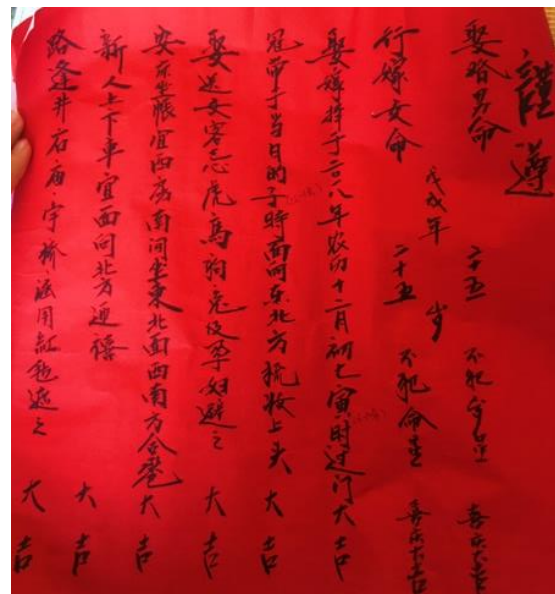 謹遵
娶婚男命 二十五 不犯命星 喜庆大吉
戊戌年 岁
行嫁女命 二十五 不犯命星 喜庆大吉
娶嫁择于二〇一八年农历十二月初七寅时过门大吉
冠带于当日的子時面向东北方梳妆上头 大吉
娶送女客忌虎馬狗兔及孕妇避之 大吉
安床坐帳宜西房南间坐東北面西南方合卺大吉
新人上下車宜面向北方迎禧 大吉
路逢井石庙宇桥涵用紅毡遮之 大吉